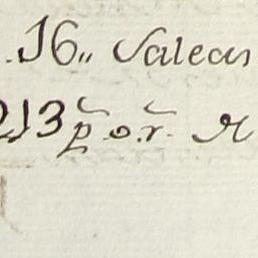 16,, Salean
213 p̃ o. r̃. M